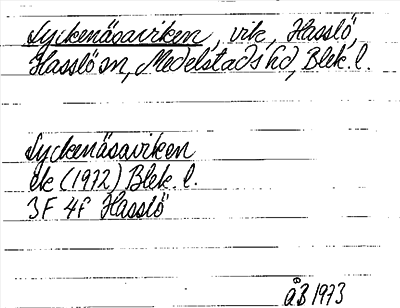 Lyckenäsaviken, vik, Hasslö,
Hasslö sn, Medelstads hd, Blek. l.
Lyckenäsaviken
ek (1972) Blek. l.
3F 4f Hasslö
ÅB 1973